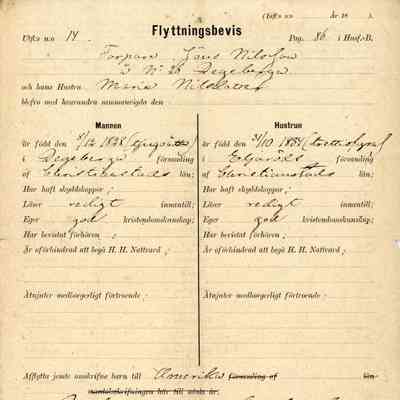 (Tills n:o År 18 ).
Flyttningsbevis
Utfls n:o 14. Pag. 86 i Husf.-B.
Torparn Jöns Nilsson
å No 26 Degeberga
och hans Hustru Maria Nilsdotter
blefvo med hvarandra sammanvigda den
Mannen
är född den 8/12 1828 (tjuguåtta)
i Degeberga församling
af Christianstads län;
Har haft skyddskoppor ;
Läser redigt innantill;
Eger god kristendomskunskap;
Har bevistat förhören ;
Är oförhindrad att begå H. H. Nattvard ;
Åtnjuter medborgerligt förtroende ;
Hustrun
är född den 31/10 1834 (trettiofyra)
i församling
af Christianstads län;
Har haft skyddskoppor ;
Läser redigt innantill;
Eger god kristendomskunskap;
Har bevistat förhören ;
Är oförhindrad att begå H. H. Nattvard ;
Åtnjuter medborgerligt förtroende ;
Afflytta jemte omskrifne barn till Amerika församling af län
mantalsskrifningen här till nästa år.